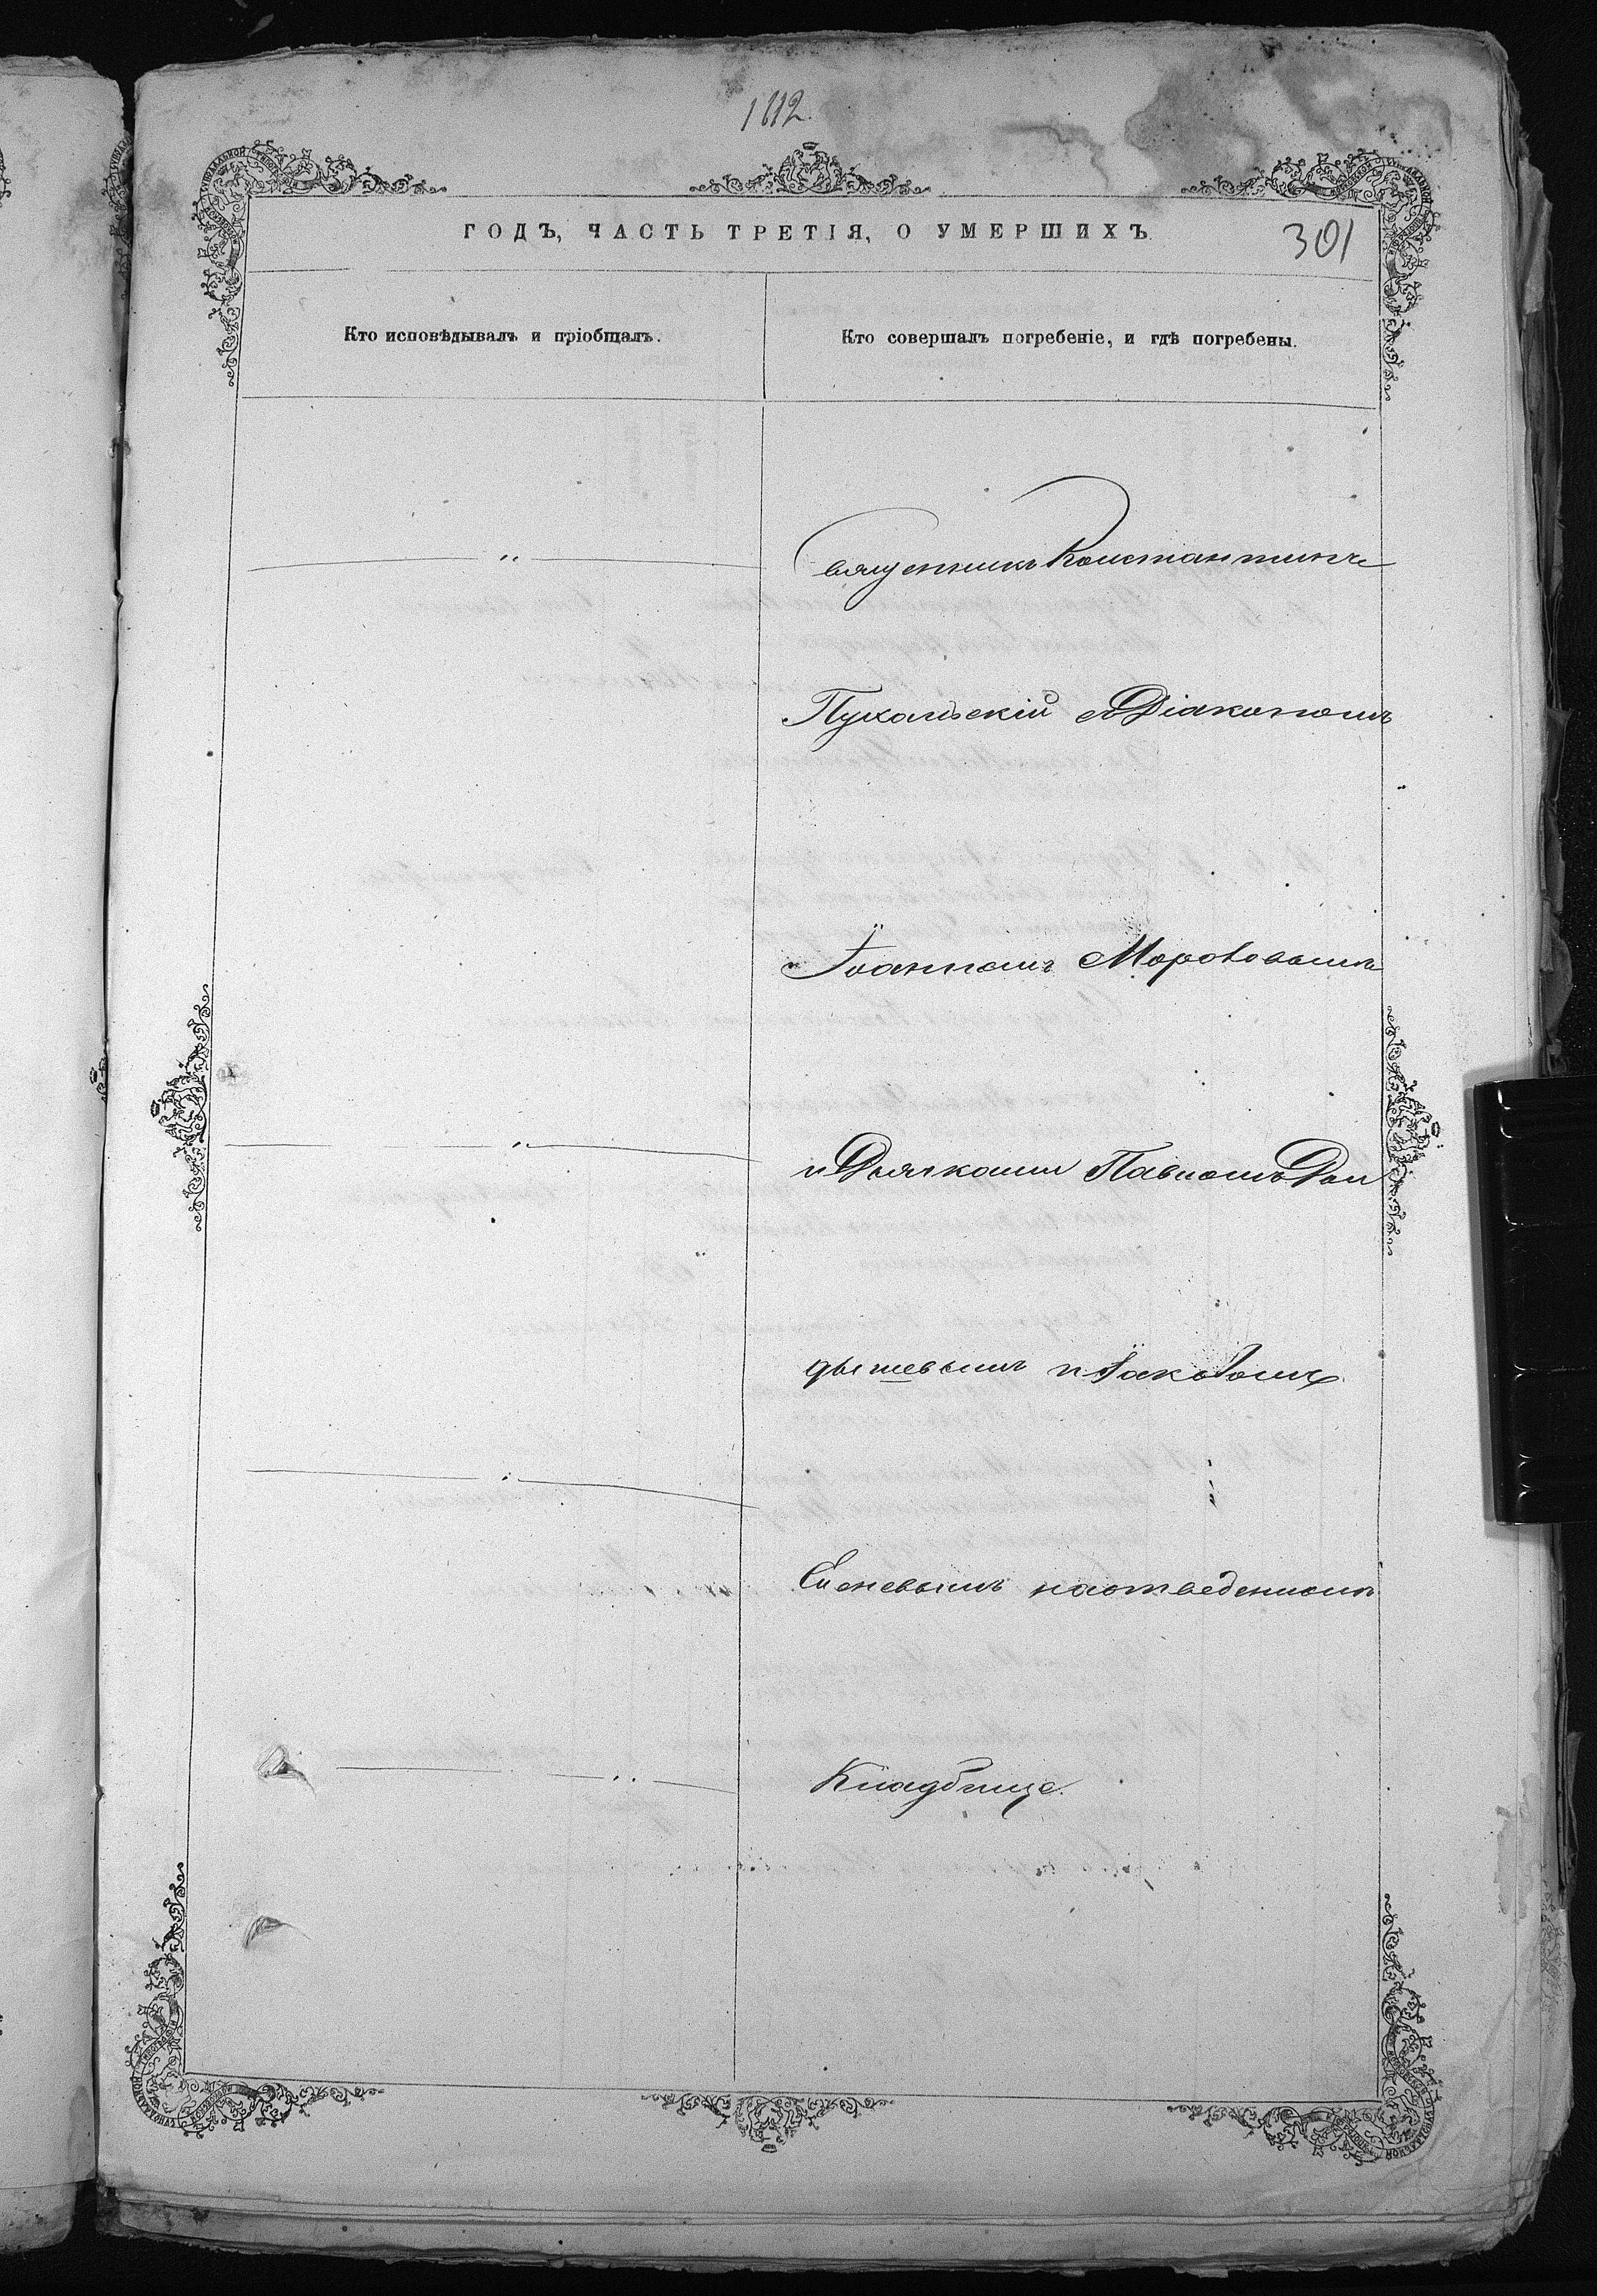 1112.
ГОДЪ, ЧАСТЬ ТРЕТІЯ, О УМЕРШИХЪ
301
Кто исповѣдывалъ и пріобщалъ.
Кто совершалъ погребеніе, и гдѣ погребены.
Священникъ Константинъ
Пухальскій съ Діакономъ
Іоанномъ
и Дьячками Павломъ
и Іаковомъ
на отведенномъ
Кладбище.